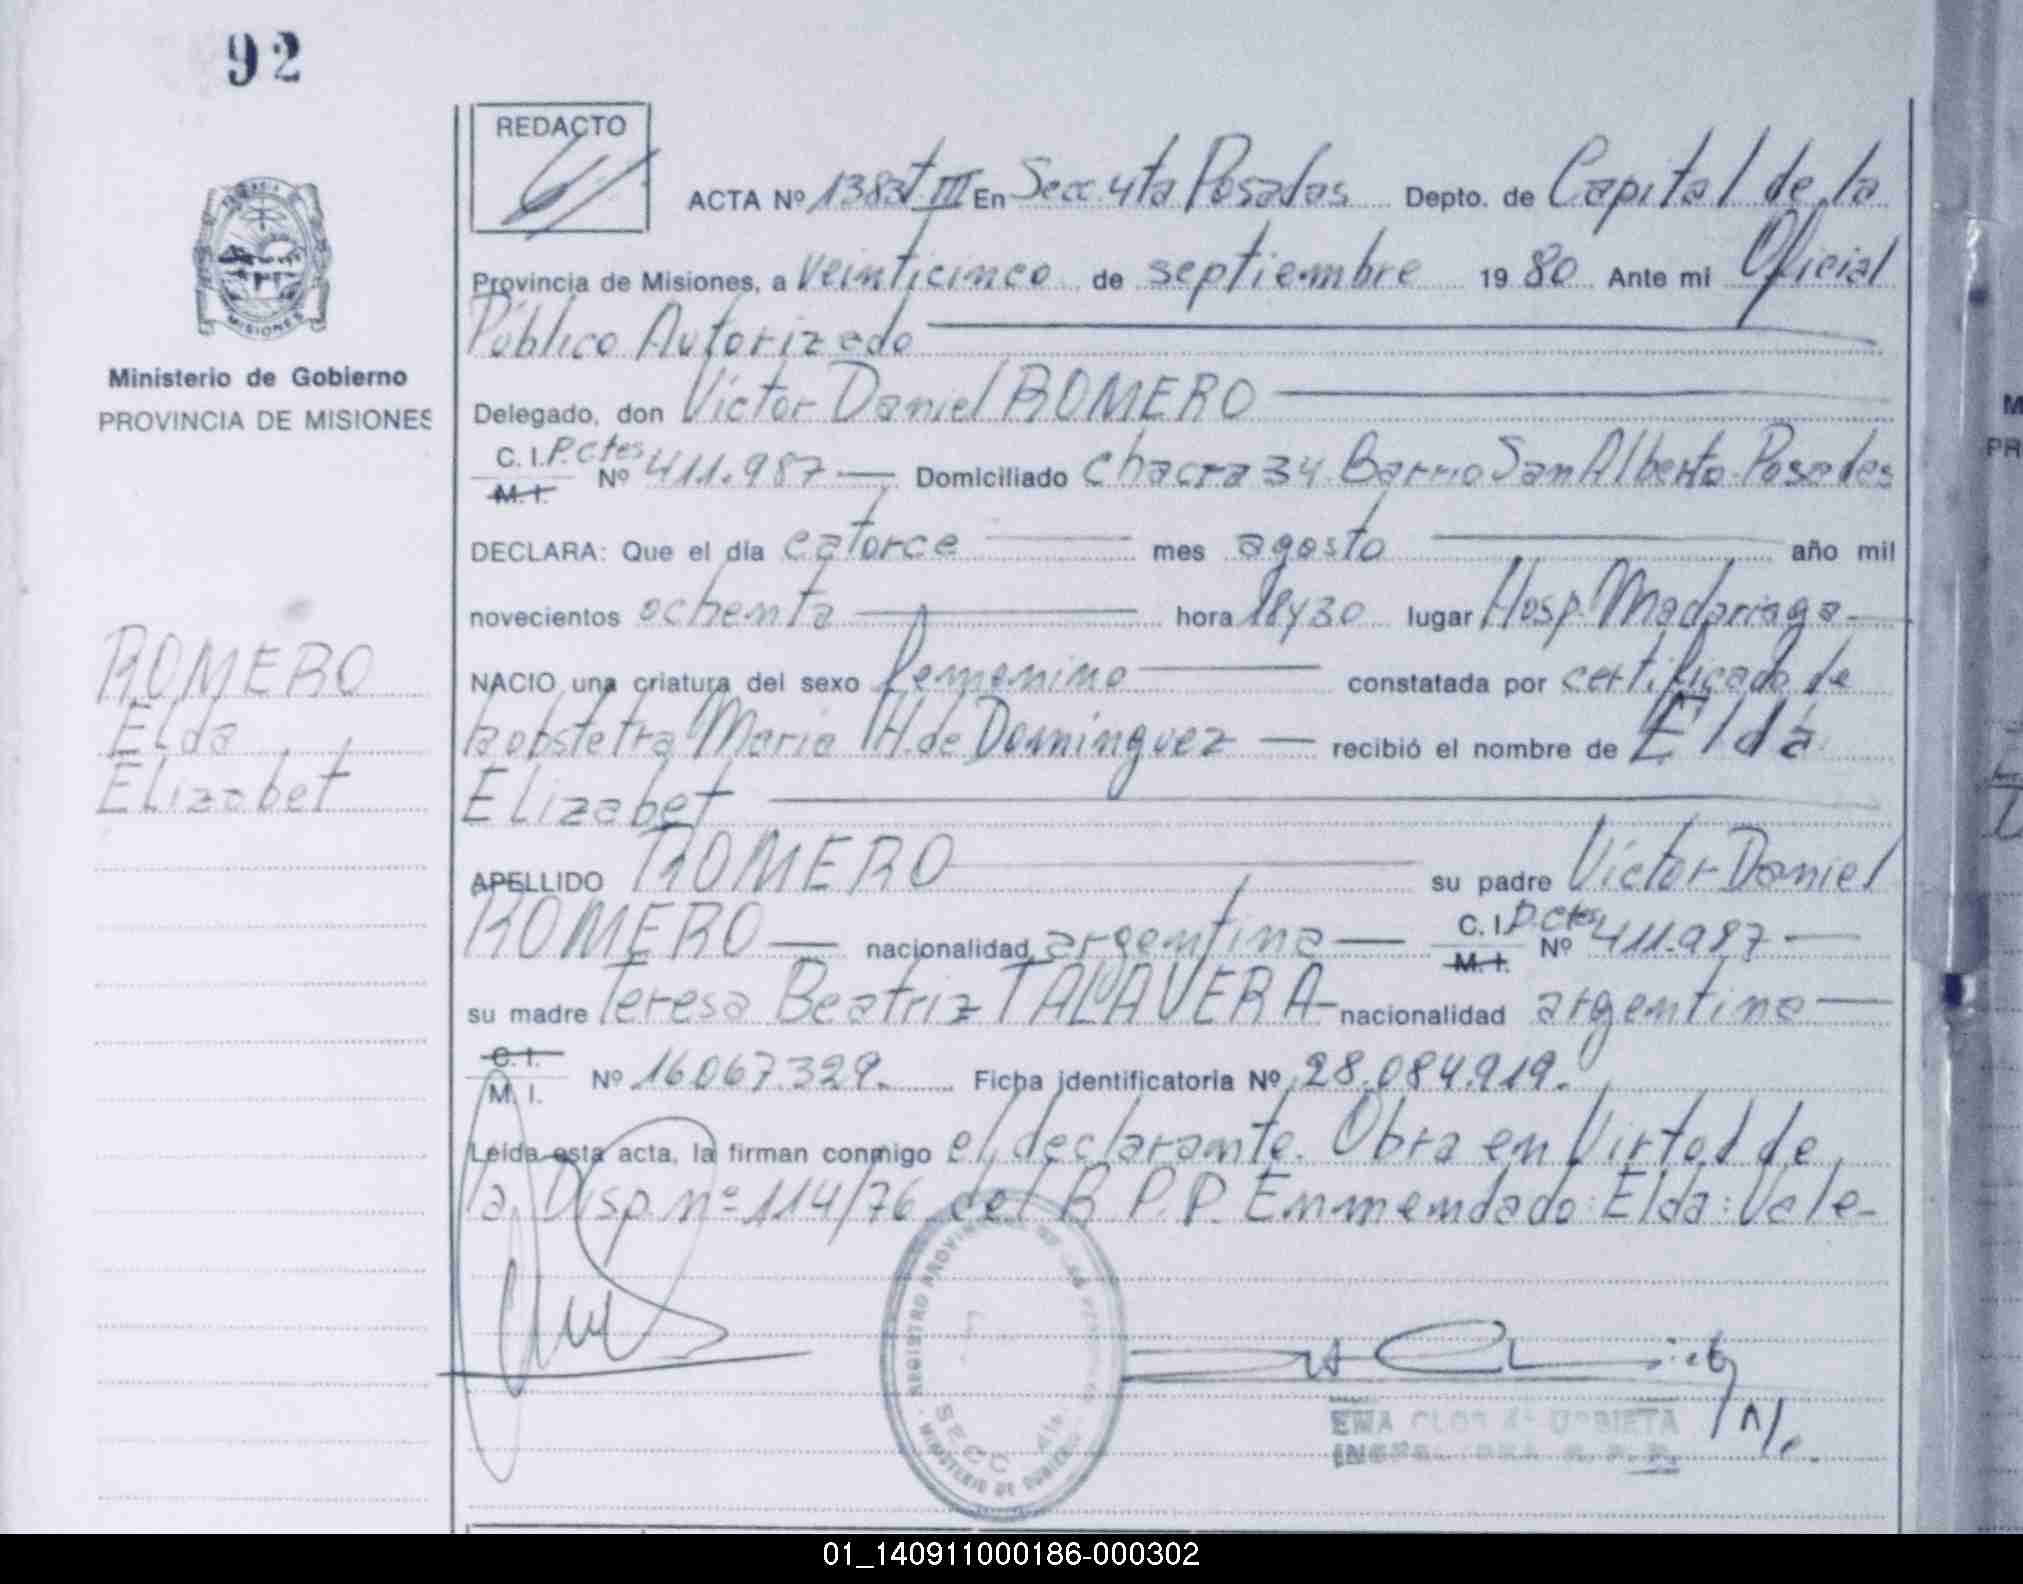 92
REDACTO
ACTA Nº 1383 T. III En Secc. 4ta Posadas Depto. de Capital de la
Provincia de Misiones, a veinticinco de septiembre 1980 Ante mi Oficial
Público Autorizado
MISIONES
Ministerio de Gobierno
PROVINCIA DE MISIONES
Delegado, don Victor Daniel ROMERO
C. I. P. Ctes
M. I. Nº 411.987 Domiciliado chacra 34. Barrio San Alberto-Posadas
DECLARA: Que el día catorce mes agosto año mil
novecientos ochenta hora 18 y 30 lugar Hosp. Madariaga
ROMERO
Elda
Elizabet
NACIO una criatura del sexo femenino constatada por certificado de
la obstetra Maria H. de Dominguez recibió el nombre de Elda
Elizabet
APELLIDO ROMERO su padre Victor Daniel
ROMERO nacionalidad argentina C. I. P. Ctes M. I. Nº 411.987
su madre Teresa Beatriz TALAVERA nacionalidad argentina
C. I.
M. I. Nº 16.067.329. Ficha identificatoria Nº 28.084.919.
Leída esta acta, la firman conmigo el declarante. Obra en Virtud de
la Disp. nº 114/76 del R. P. P. Enmendado: Elda: Vale-
REGISTRO PROVINCIAL DE LAS PERSONAS
SECC. 4ta
MINISTERIO DE GOBIERNO
URBIETA
01_140911000186-000302